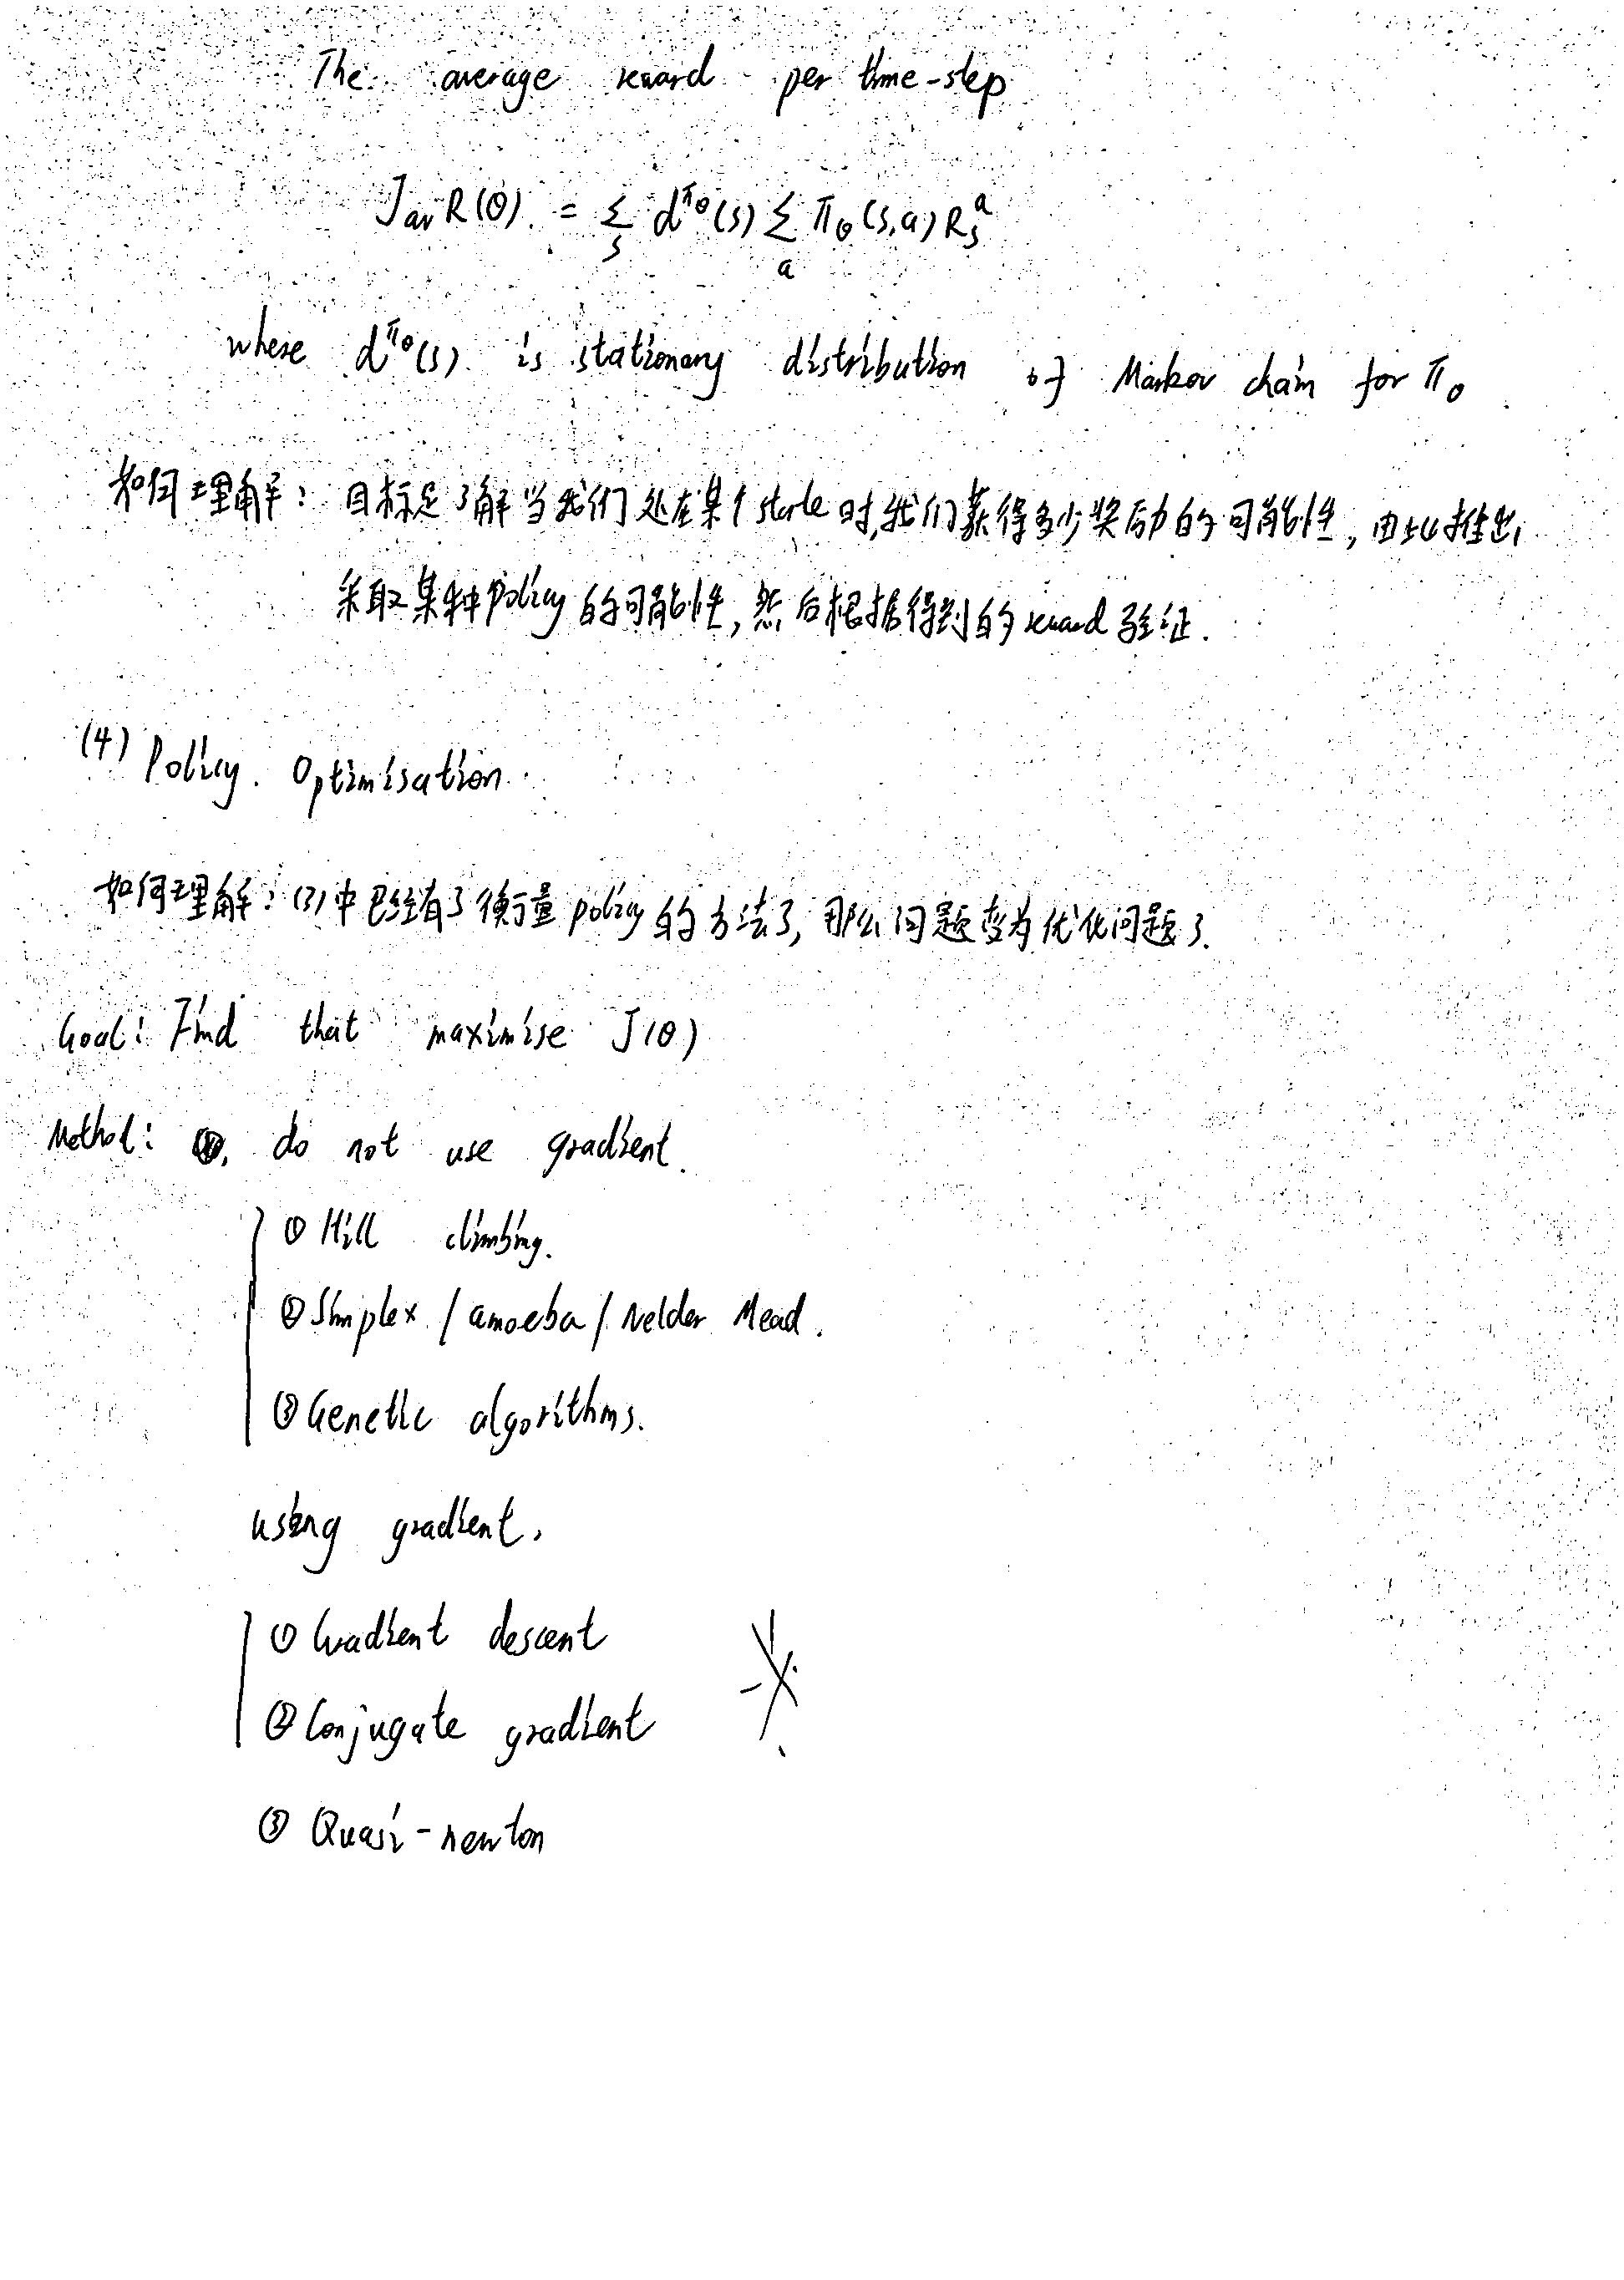 The average reward per time-step
J_av R(θ) = Σ_s d^{π_θ}(s) Σ_a π_θ(s,a) R_s^a
where d^{π_θ}(s) is stationary distribution of Markov chain for π_θ.
如何理解: 目标是了解当我们处在某个state时,我们获得多少奖励的可能性,由此推出,
采取某种policy的可能性,然后根据得到的reward验证.
(4) Policy Optimisation
如何理解: (3)中已经有了衡量policy的方法了,那么问题变为优化问题了.
Goal: Find that maximise J(θ)
Method: do not use gradient.
① Hill climbing.
② Simplex / amoeba / Nelder Mead.
③ Genetic algorithms.
using gradient,
① Gradient descent
② Conjugate gradient
③ Quasi-newton